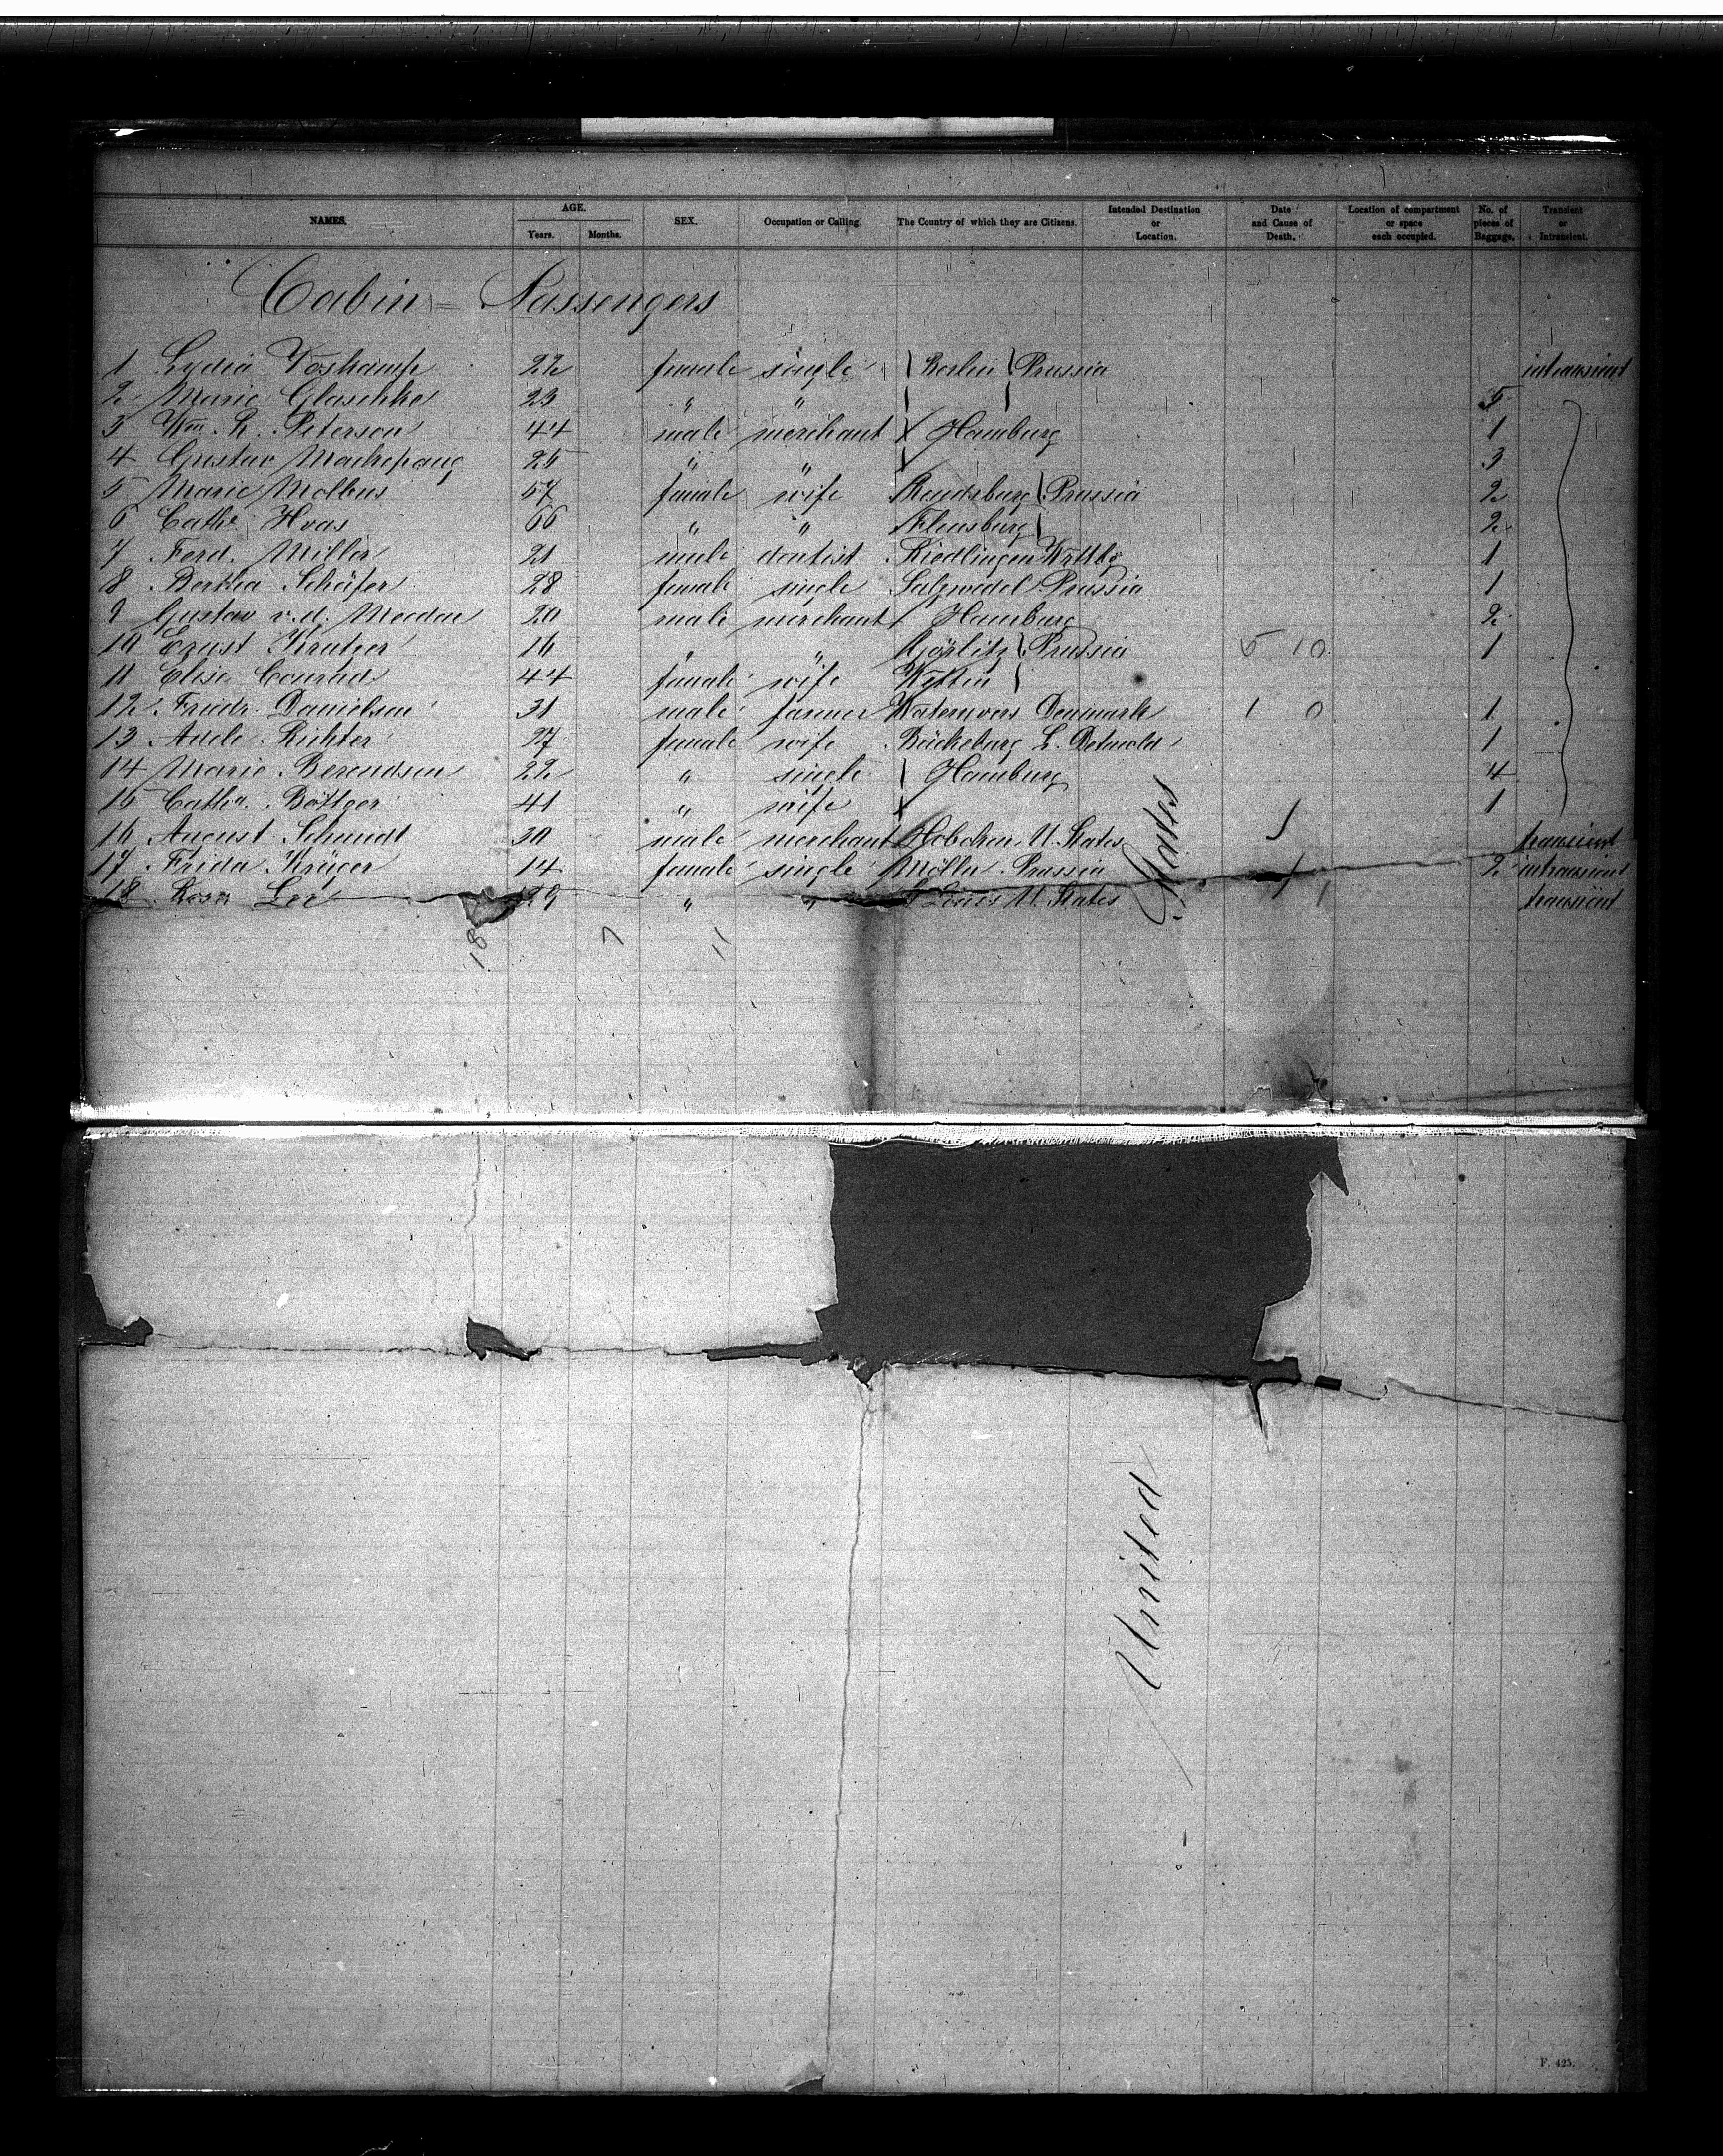 NAMES. AGE. Years. Months. SEX. Occupation or Calling. The Country of which they are Citizens. Intended Destination or Location. Date and Cause of Death. Location of compartment or space each occupied. No. of pieces of Baggage. Transient or Intransient.
Cabin = Passengers
1 Lydia Voskamp 22 female single Berlin Prussia intransient
2 Marie Glaschke 23 " " 5
3 Wm. Peterson 44 male merchant Hamburg 1
4 Gustav Mackepang 25 " " 3
5 Marie Molbus 57 female wife Rendsburg Prussia 2
6 Cathe Hoas 66 " " Flensburg 2
7 Ferd. Miller 21 male dentist Riedlingen Wrttbg 1
8 Bertha Schäfer 28 female single Salzwedel Prussia 1
9 Gustav v. d. Meeden 20 male merchant Hamburg 2
10 Ernst Krutzer 16 " " Görlitz Prussia 5 10 1
11 Elise Conrad 44 female wife Wettin
12 Friedr. Danielsen 31 male farmer Denmark 1 0 1
13 Aude Richter 27 female wife Bückeburg L. Detmold 1
14 Marie Berendsen 22 " single Hamburg 4
15 Catha. Böttger 41 " wife 1
16 August Schmidt 30 male merchant Hoboken U. States transient
17 Frida Krüger 14 female single Mölln Prussia 2 intransient
18 Rosa Ler 29 " " St Louis U. States transient
18 7 11
States
United
F. 425.